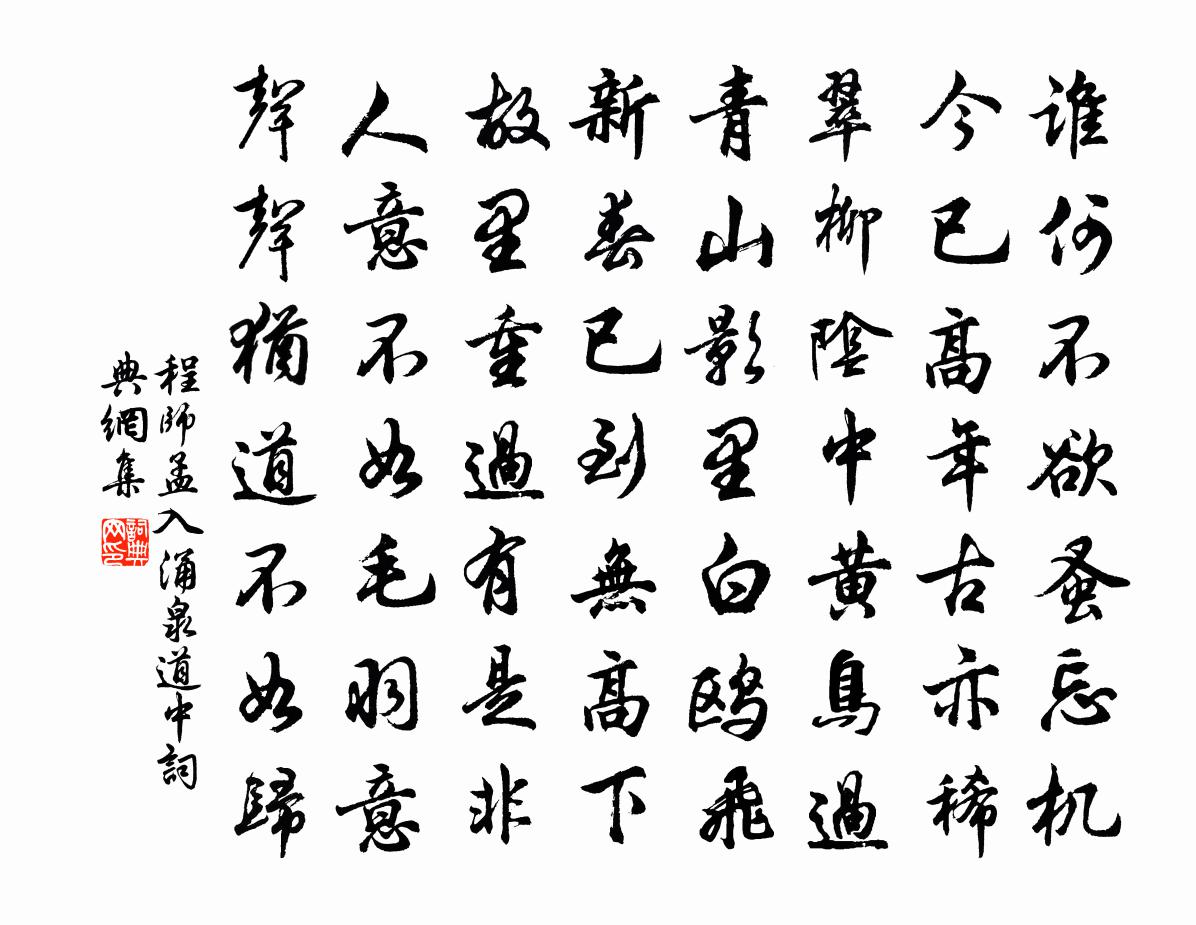 谁何不欲蚤忘机
今已高年古亦稀
翠柳陰中黄鳥過
青山影里白鸥飛
新春已到無高下
故里重過有是非
人意不如毛羽意
聲聲猶道不如歸
程師孟入涌泉道中詞
典網集
詞典
网印